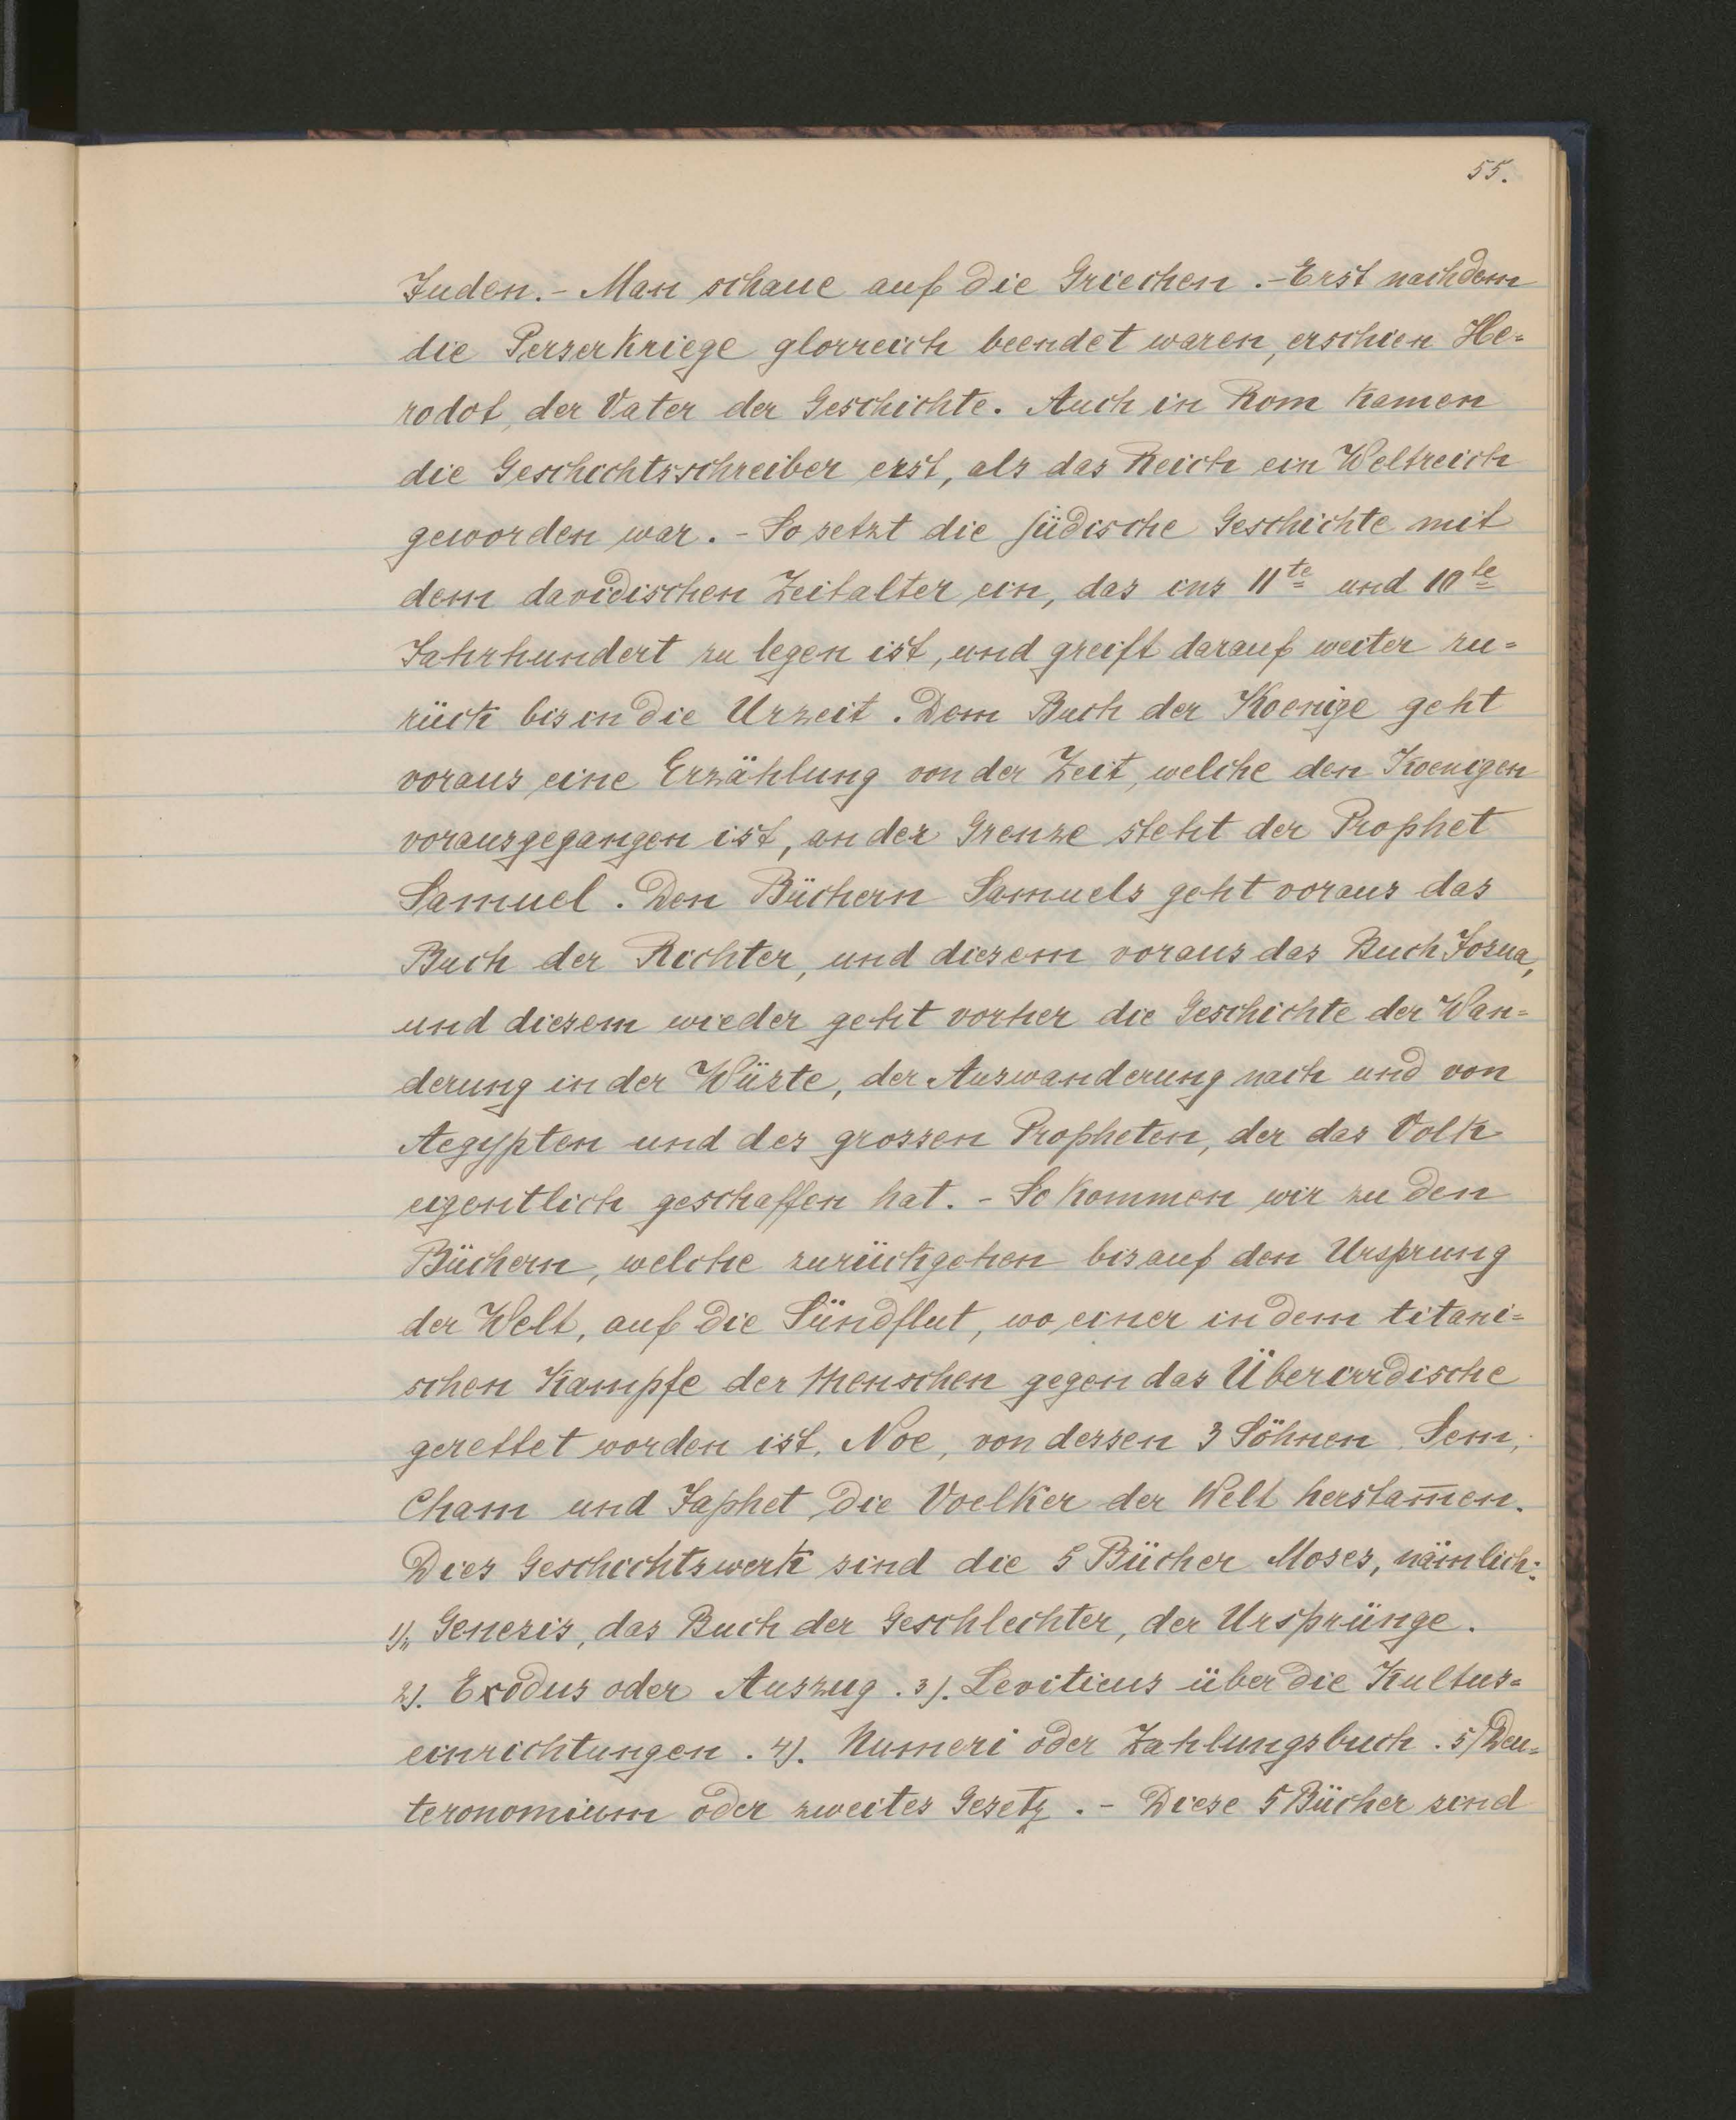 55.
Juden. - Man schaue auf die Griechen. - Erst nachdem
die Perserkriege glorreich beendet waren, erschien He=
rodot, der Vater der Geschichte. Auch in Rom kamen
die Geschichtsschreiber erst, als das Reich ein Weltreich
geworden war. - So setzt die jüdische Geschichte mit
dem davidischen Zeitalter ein, das ins 11te und 10te
Jahrhundert zu legen ist, und greift darauf weiter zu=
rück bis in die Urzeit. Dem Buch der Koenige geht
voraus eine Erzählung von der Zeit, welche den Koenigen
vorausgegangen ist, an der Grenze steht der Prophet
Samuel. Den Büchern Samuels geht voraus das
Buch der Richter, und diesem voraus das Buch Josua,
und diesem wieder geht vorher die Geschichte der Wan=
derung in der Wüste, der Auswanderung nach und von
Aegypten und des grossen Propheten, der das Volk
eigentlich geschaffen hat. - So kommen wir zu den
Büchern, welche zurückgehen bis auf den Ursprung
der Welt, auf die Sündflut, wo einer in dem titani=
schen Kampfe der Menschen gegen das Überirrdische
gerettet worden ist, Noe, von dessen 3 Söhnen Sem,
Cham und Japhet die Voelker der Welt herstam̅en.
Dies Geschichtswerk sind die 5 Bücher Moses, nämlich:
1), Genesis, das Buch der Geschlechter, der Ursprünge.
2). Exodus oder Auszug. 3). Leviticus über die Kultus=
einrichtungen. 4). Numeri oder Zahlungsbuch. 5) Deu=
teronomium oder zweites Gesetz. - Diese 5 Bücher sind